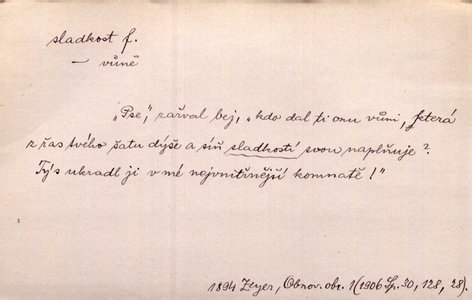 sladkost f.
— vůně
„Pse,“ zařval bej, „kdo dal ti onu vůni, která
z řas tvého šatu dýše a síň sladkostí svou naplňuje?
Tys ukradl ji v mé nejvnitřnější komnatě!“
1894 Zeyer, Obnov. obr. 1 (1906 Sp. 30, 128, 28).